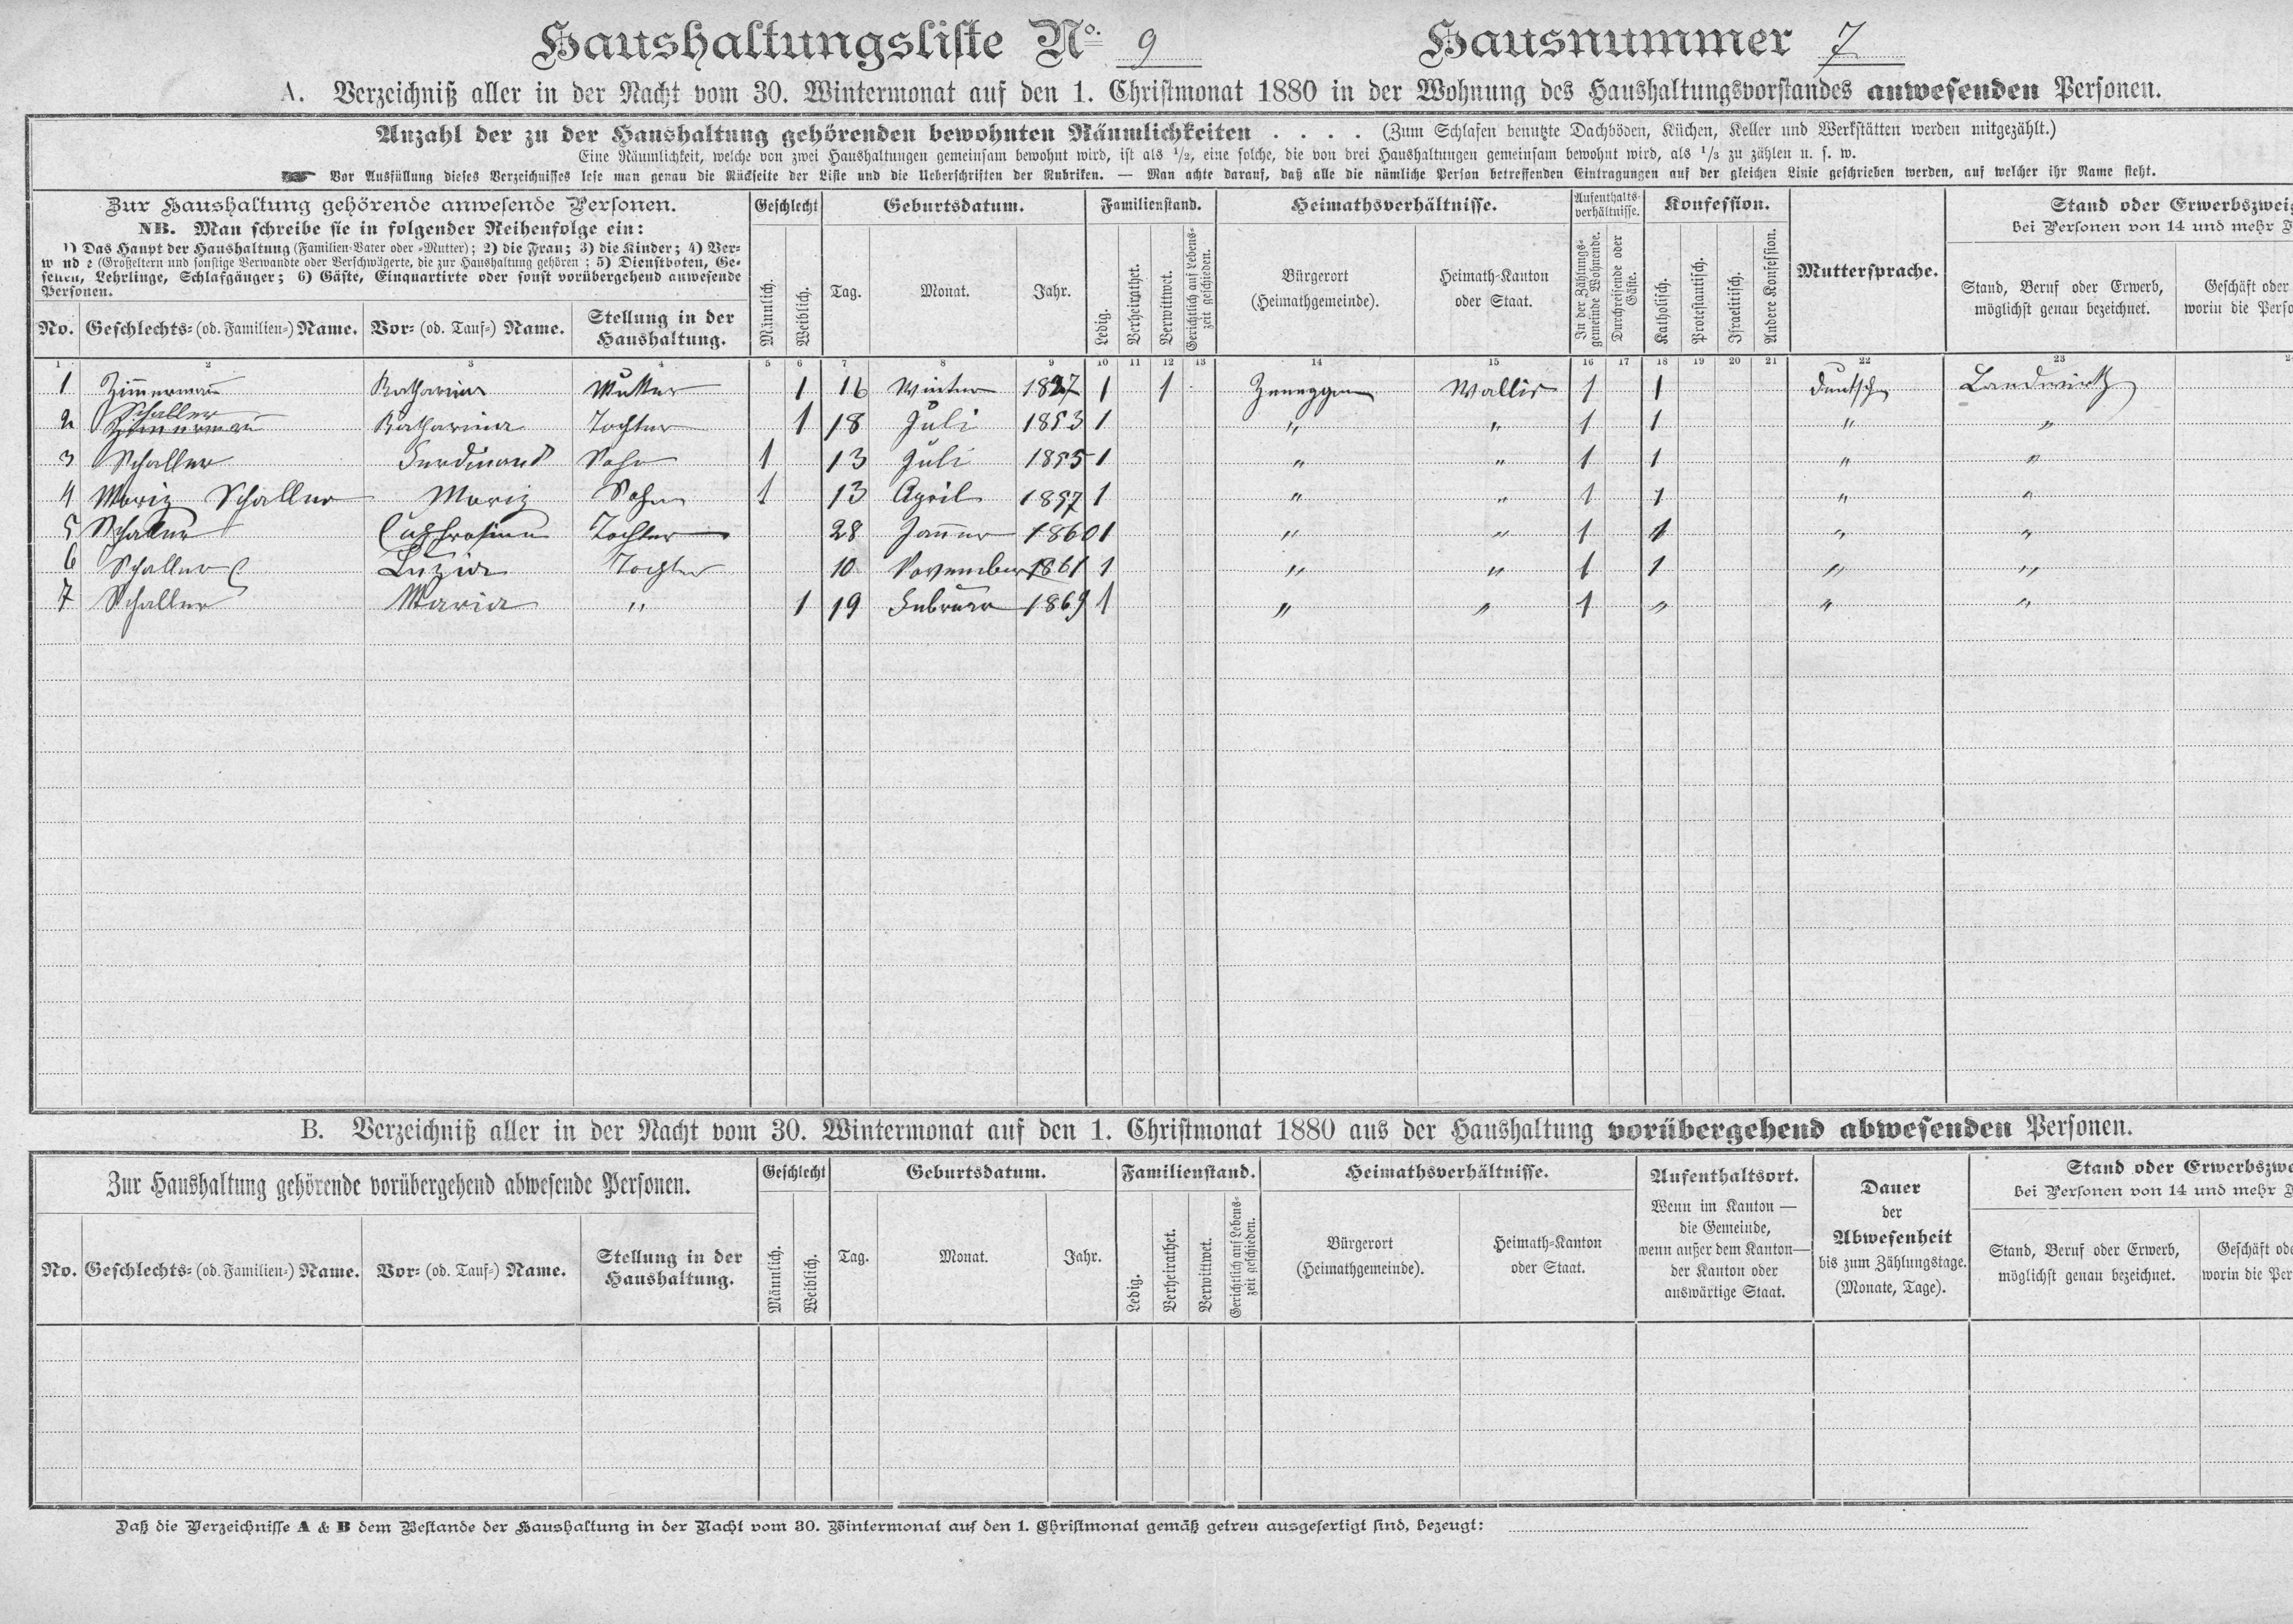 Haushaltungsliste No. 9 Hausnummer 7
A. Verzeichniß aller in der Nacht vom 30. Wintermonat auf den 1. Christmonat 1880 in der Wohnung des Haushaltungsvorstandes anwesenden Personen.
Anzahl der zu der Haushaltung gehörenden bewohnten Räumlichkeiten . . . . (Zum Schlafen benutzte Dachböden, Küchen, Keller und Werkstätten werden mitgezählt.)
Eine Räumlichkeit, welche von zwei Haushaltungen gemeinsam bewohnt wird, ist als 1/2, eine solche, die von drei Haushaltungen gemeinsam bewohnt wird, als 1/3 zu zählen u. s. w.
Vor Ausfüllung dieses Verzeichnisses lese man genau die Rückseite der Liste und die Ueberschriften der Rubriken. — Man achte darauf, daß alle die nämliche Person betreffenden Eintragungen auf der gleichen Linie geschrieben werden, auf welcher ihr Name steht.
Zur Haushaltung gehörende anwesende Personen.
NB. Man schreibe sie in folgender Reihenfolge ein:
1) Das Haupt der Haushaltung (Familien-Vater oder -Mutter); 2) die Frau; 3) die Kinder; 4) Ver-
w nd e (Großeltern und sonstige Verwandte oder Verschwägerte, die zur Haushaltung gehören; 5) Dienstboten, Ge-
sellen, Lehrlinge, Schlafgänger; 6) Gäste, Einquartirte oder sonst vorübergehend anwesende
Personen.
No. Geschlechts- (od. Familien-) Name. Vor- (od. Tauf-) Name. Stellung in der Haushaltung.
Geschlecht
Männlich. Weiblich.
Geburtsdatum.
Tag. Monat. Jahr.
Familienstand.
Ledig. Verheirathet. Verwittwet. Gerichtlich auf Lebenszeit geschieden.
Heimathsverhältnisse.
Bürgerort (Heimathgemeinde). Heimath-Kanton oder Staat.
Aufenthalts-verhältnisse.
In der Zählungsgemeinde Wohnende. Durchreisende oder Gäste.
Konfession.
Katholisch. Protestantisch. Israelitisch. Andere Konfession.
Muttersprache.
Stand oder Erwerbszweig
bei Personen von 14 und mehr J
Stand, Beruf oder Erwerb, möglichst genau bezeichnet. Geschäft oder
worin die Perso
1 2 3 4 5 6 7 8 9 10 11 12 13 14 15 16 17 18 19 20 21 22 23 2
1 Zimerman Katharina Mutter 1 16 Winter 1827 1 1 Zeneggen Wallis 1 1 deutsch Landwirth
Schaller
2 Zimerman Katharina Tochter 1 18 Juli 1853 1 " " 1 1 " "
3 Schaller Ferdinand Sohn 1 13 Juli 1855 1 " " 1 1 " "
4 Moriz Schaller Moriz Sohn 1 13 April 1857 1 " " 1 1 " "
5 Schaller Euphrosine Tochter 28 Janner 1860 1 " " 1 1 " "
6 Schaller Luzia Tochter 10 November 1861 1 " " 1 1 " "
7 Schaller Maria " 1 19 Februar 1869 1 " " 1 " " "
B. Verzeichniß aller in der Nacht vom 30. Wintermonat auf den 1. Christmonat 1880 aus der Haushaltung vorübergehend abwesenden Personen.
Zur Haushaltung gehörende vorübergehend abwesende Personen.
No. Geschlechts- (od. Familien-) Name. Vor- (od. Tauf-) Name. Stellung in der Haushaltung.
Geschlecht
Männlich. Weiblich.
Geburtsdatum.
Tag. Monat. Jahr.
Familienstand.
Ledig. Verheirathet. Verwittwet. Gerichtlich auf Lebenszeit geschieden.
Heimathsverhältnisse.
Bürgerort (Heimathgemeinde). Heimath-Kanton oder Staat.
Aufenthaltsort.
Wenn im Kanton —
die Gemeinde,
wenn außer dem Kanton—
der Kanton oder
auswärtige Staat.
Dauer
der
Abwesenheit
bis zum Zählungstage.
(Monate, Tage).
Stand oder Erwerbszwe
bei Personen von 14 und mehr J
Stand, Beruf oder Erwerb, möglichst genau bezeichnet. Geschäft ode
worin die Per
Daß die Verzeichnisse A & B dem Bestande der Haushaltung in der Nacht vom 30. Wintermonat auf den 1. Christmonat gemäß getreu ausgefertigt sind, bezeugt: